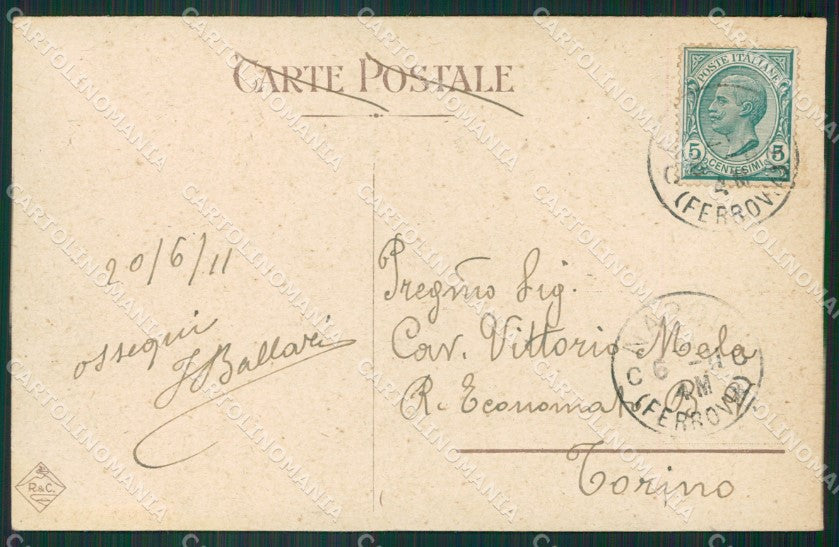 CARTE POSTALE
POSTE ITALIANE
5 5
CENTESIMI
4
(FERROVIA)
20/6/11
ossequi
Ballari
Pregmo Sig.
Cav. Vittorio Mela
R. Economa
6
PM
(FERROVIA)
Torino
R&C.
CARTOLINOMANIA